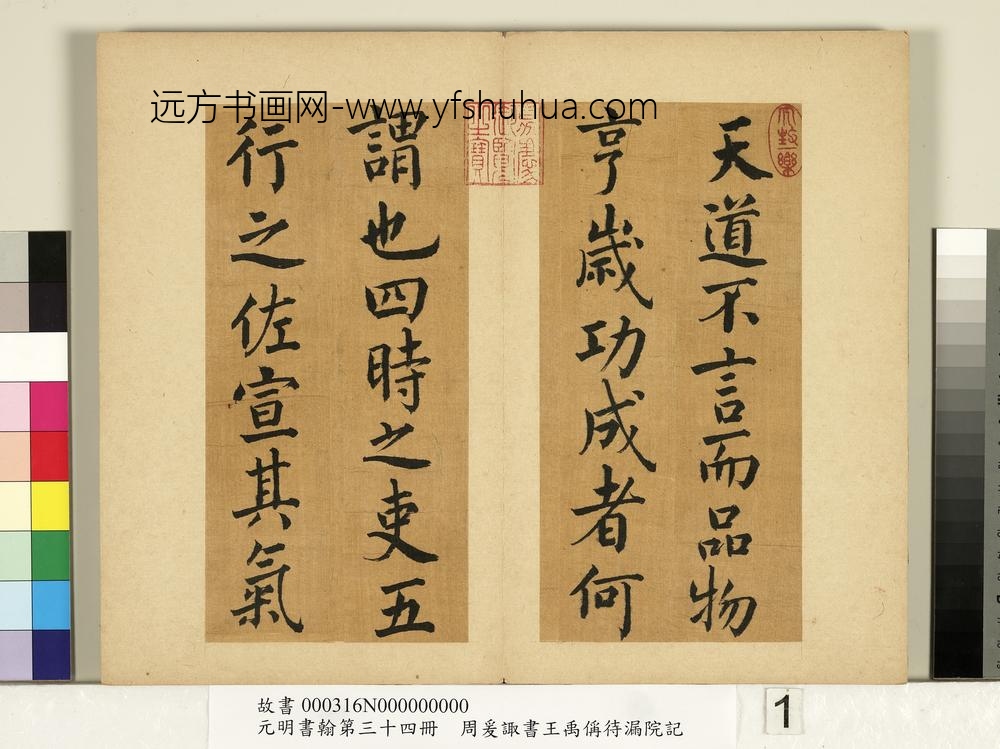 远方书画网-www.yfshuhua.com
天道不言而品物
亨歲功成者何
謂也四時之吏五
行之佐宣其氣
故書 000316N000000000
元明書翰第三十四冊　周爰諏書王禹偁待漏院記
1